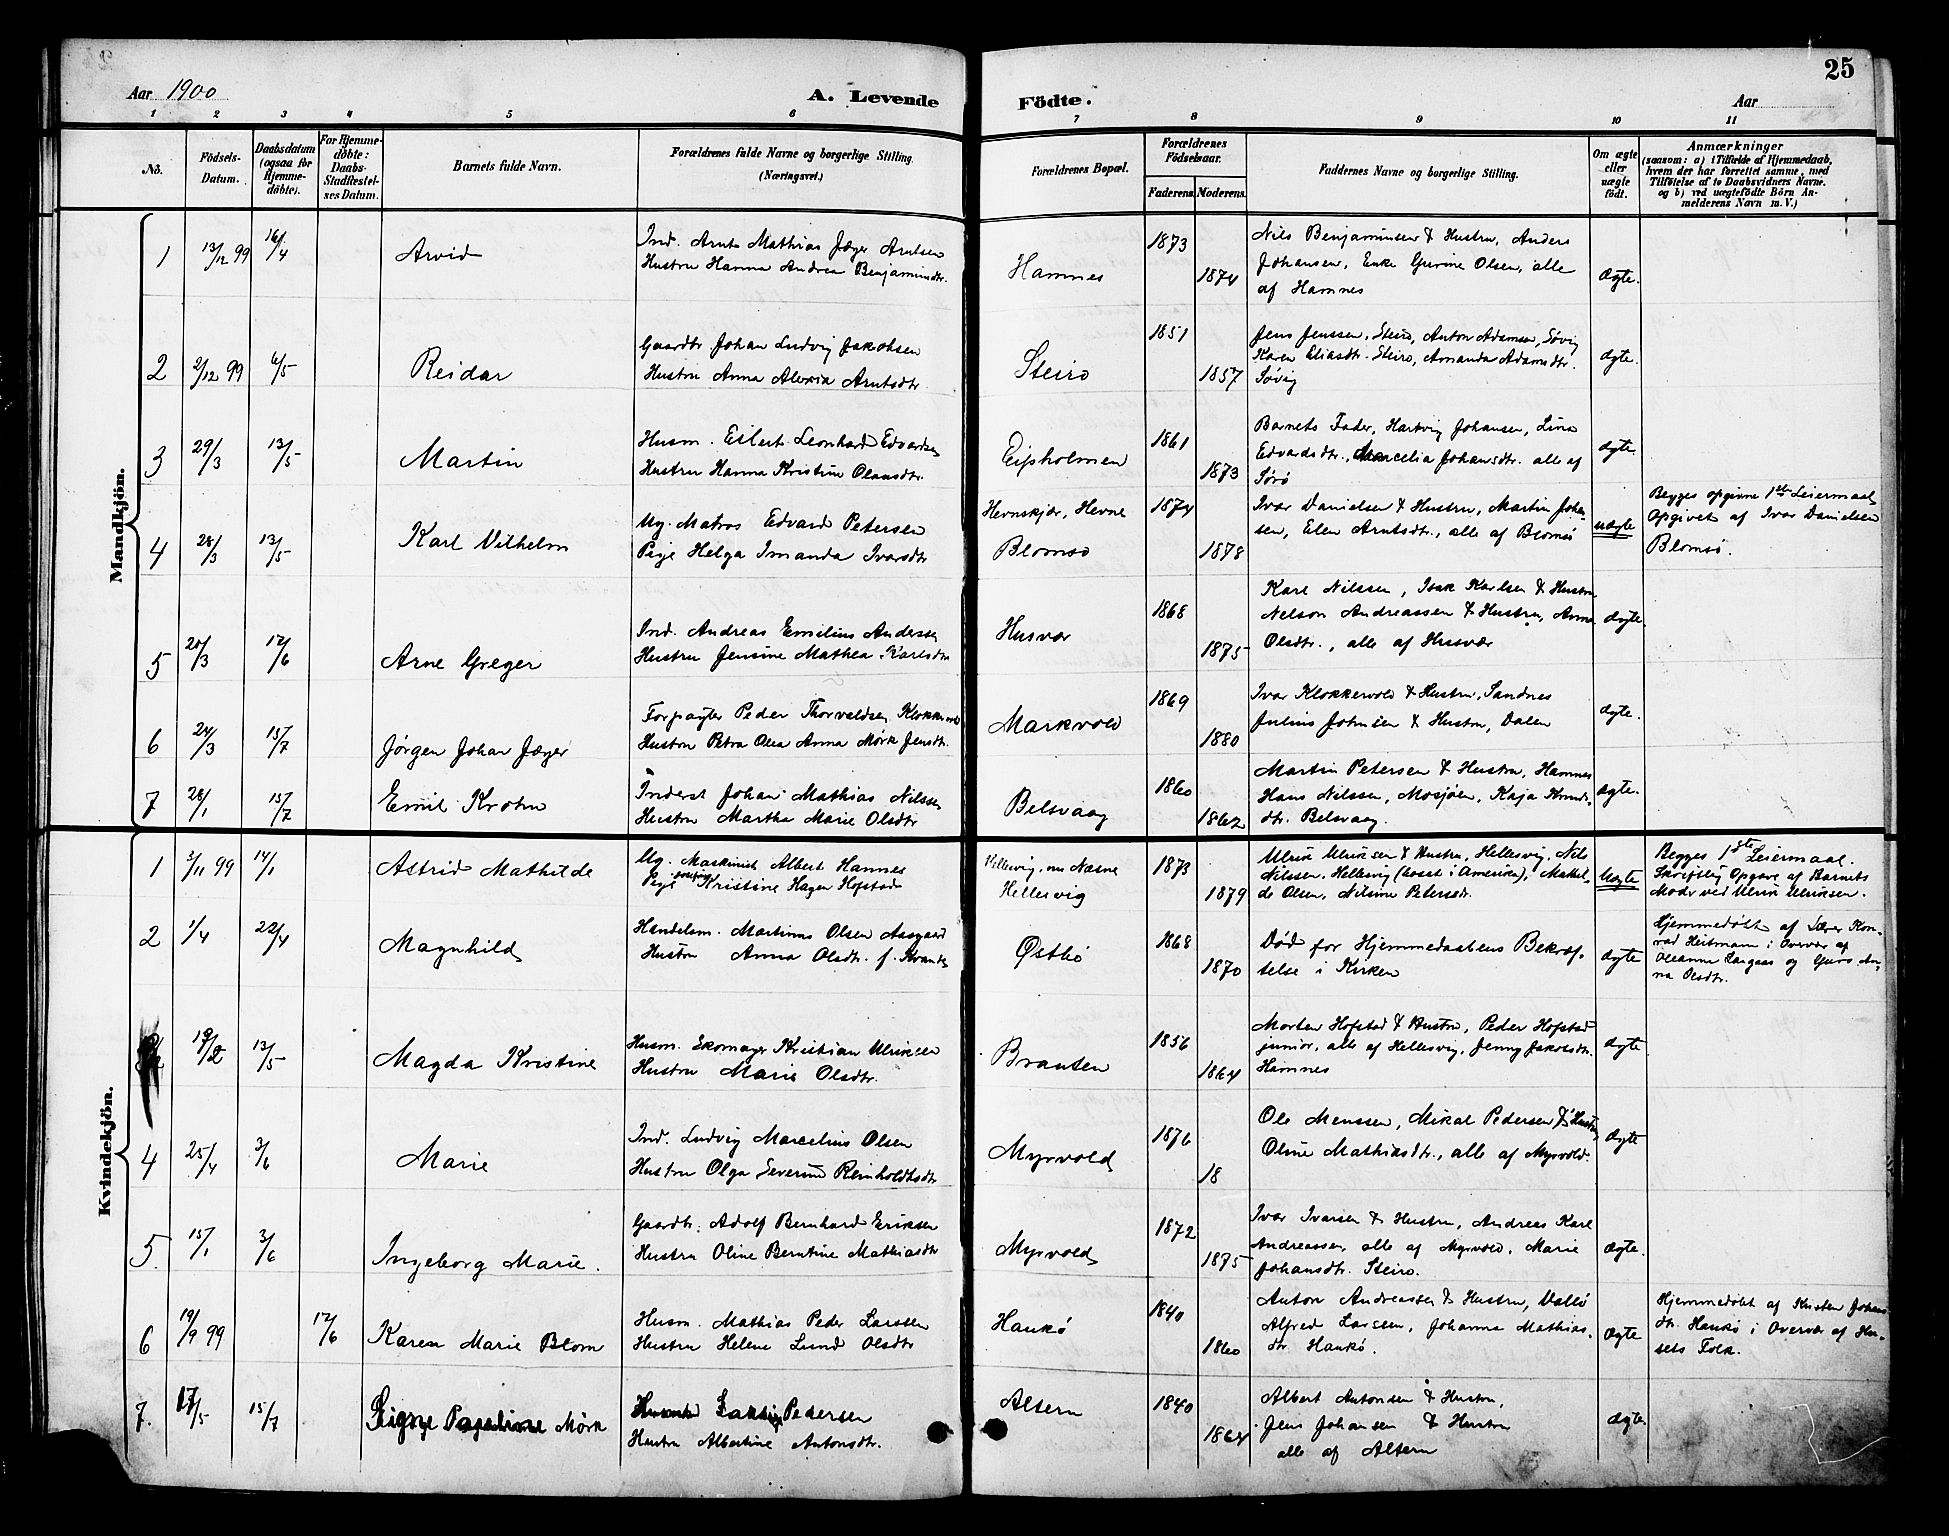 25
Aar 1900
A. Levende
Födte.
Aar
1 2 3 4 5 6 7 8 9 10 11
No.
Födsels-
Datum.
Daabsdatum
(ogsaa for
Hjemme-
döbte).
For Hjemme-
döbte:
Daabs-
Stadfæstel-
ses Datum.
Barnets fulde Navn.
Forældrenes fulde Navne og borgerlige Stilling.
(Næringsvei.)
Forældrenes Bopæl.
Forældrenes
Födselsaar.
Faderens. Moderens.
Faddernes Navne og borgerlige Stilling.
Om ægte
eller
uægte
födt.
Anmærkninger
(saasom: a) i Tilfælde af Hjemmedaab,
hvem der har forrettet samme, med
Tilföielse af to Daabsvidners Navne.
og b) ved uægtefödte Börn An-
melderens Navn m. V.)
Mandkjön.
1 13/12 99 16/4 Arvid
Ind. Arnt Mathias Jæger Arntsen
Hustru Hanna Andrea Benjaminsdtr.
Hamnes
1873
1874
Nils Benjaminsen & Hustru, Anders
Johansen, Enke Gurine Olsen, alle
af Hamnes
ægte.
2 2/12 99 6/5 Reidar
Gaardbr Johan Ludvig Jakobsen
Hustru Anna Alexia Arntsdtr
Steiro
1851
1857
Jens Jenssen, Steiro, Anton Adamsen, Søvig
Karen Eliasdtr. Steiro, Amanda Adamsdtr.
Søvig
ægte.
3 29/3 13/5 Martin
Husm. Eilert Leonhard Edvardsen
Hustru Hanna Kristine Olausdtr.
1861
1873
Barnets Fader, Hartvig Johansen, Lina
Edvardsdtr., Marcelia Johansdtr. alle af
Sørø
ægte
4 28/3 13/5 Karl Vilhelm
Ug. Matros Edvard Petersen
Pige Helga Imanda Ivarsdtr
Hevnskjær, Hevne
Blomsø
1874
1878
Ivar Danielsen & Hustru, Martin Johan-
sen, Elen Arntsdtr., alle af Blomsø
uægte
Begges opgivne 1ste Leiermaal
Opgivet af Ivar Danielsen
Blomsø.
5 20/3 12/6 Arne Greger
Ind. Andreas Emilius Andersen
Hustru Jensine Mathea Karlsdtr
Husvær
1868
1875
Karl Nilssen, Isak Karlsen & Hustru
Nelson Andreassen & Hustru, Anna
Olsdtr., alle af Husvær
ægte.
6 24/3 15/7 Jørgen Johan Jæger
Forpagter Peder Thorvaldsen Klokkervold
Hustru Petra Olea Anna Mørk Jensdtr.
Markvold
1869
1880
Ivar Klokkervold & Hustru, Sandnes
Julius Johnsen & Hustru, Dalen
ægte.
7 28/1 15/7 Emil Krohn
Inderst Johan Mathias Nilssen
Hustru Martha Marie Olsdtr
Belsvaag
1860
1862
Martin Petersen & Hustru, Hamnes
Hans Nilssen, Mosjøen, Kaja Knuds-
dtr. Belsvaag.
ægte.
Kvindekjön.
1 3/11 99 14/1 Astrid Mathilde
Ug. Maskinist Albert Hannes
Pige Kristine Hagen Hofstad
Hellesvig, nu Næsne
Hellesvig
1873
1879
Ulrik Ulriksen & Hustru, Hellesvig, Nils
Nilssen, Hellesvig (bosat i Amerika), Mathil-
de Olsen, Nilsine Petersdtr.
Uægte
Begges 1ste Leiermaal.
Skriftlig Opgave af Barnets
Moder ved Ulrik Ulriksen.
2 1/4 22/4 Magnhild
Handelsm. Martinus Olsen Aasgaard
Hustru Anna Olsdtr. f.
Østbø
1868
1870
Død før Hjemmedaabens Bekræf-
telse i Kirken
ægte
Hjemmedøbt af Lærer Kon-
rad Heitmann i Overvær af
Oleanna og Guro An-
na Olsdtr.
19/2 13/5 Magda Kristine
Husm. Skomager Kristian Ulriksen
Hustru Marie Olsdtr.
Brauten
1856
1864
Morten Hofstad & Hustru, Peder Hofstad
junior, alle af Hellesvig, Jenny Jakobsdtr.
Hamnes
ægte.
4 25/4 3/6 Marie
Ind. Ludvig Marcelius Olsen
Hustru Olga Severine Reinholdtsdtr
Myrvold
1876
18
Ole Monssen, Mikal Pedersen & Hustru,
Oline Mathiasdtr., alle af Myrvold.
ægte
5. 15/1 3/6 Ingeborg Marie.
Gaardbr. Adolf Bernhard Eriksen
Hustru Oline Berntine Mathiasdtr
Myrvold
1872
1875
Ivar Ivarsen & Hustru, Andreas Karl
Andreassen, alle af Myrvold, Marie
Johansdtr. Steiro.
ægte.
6 19/9 99 17/6 Karen Marie Blom
Husm. Mathias Peder Larssen
Hustru Helene Lund Olsdtr
Haukø
1840
1860
Anton Andreassen & Hustru, Vallø
Alfred Larsen, Johanna Mathias-
dtr. Haukø.
ægte
Hjemmedøbt af Kirsten Johans-
dtr. Haukø i Overvær af Hu-
sets Folk.
7. 17/5 15/7 Signe Mørk
Pedersen
Hustru Albertine Antonsdtr.
Altern
1840
1864
Albert Antonsen & Hustru,
Jens Johansen & Hustru
alle af Altern
ægte.